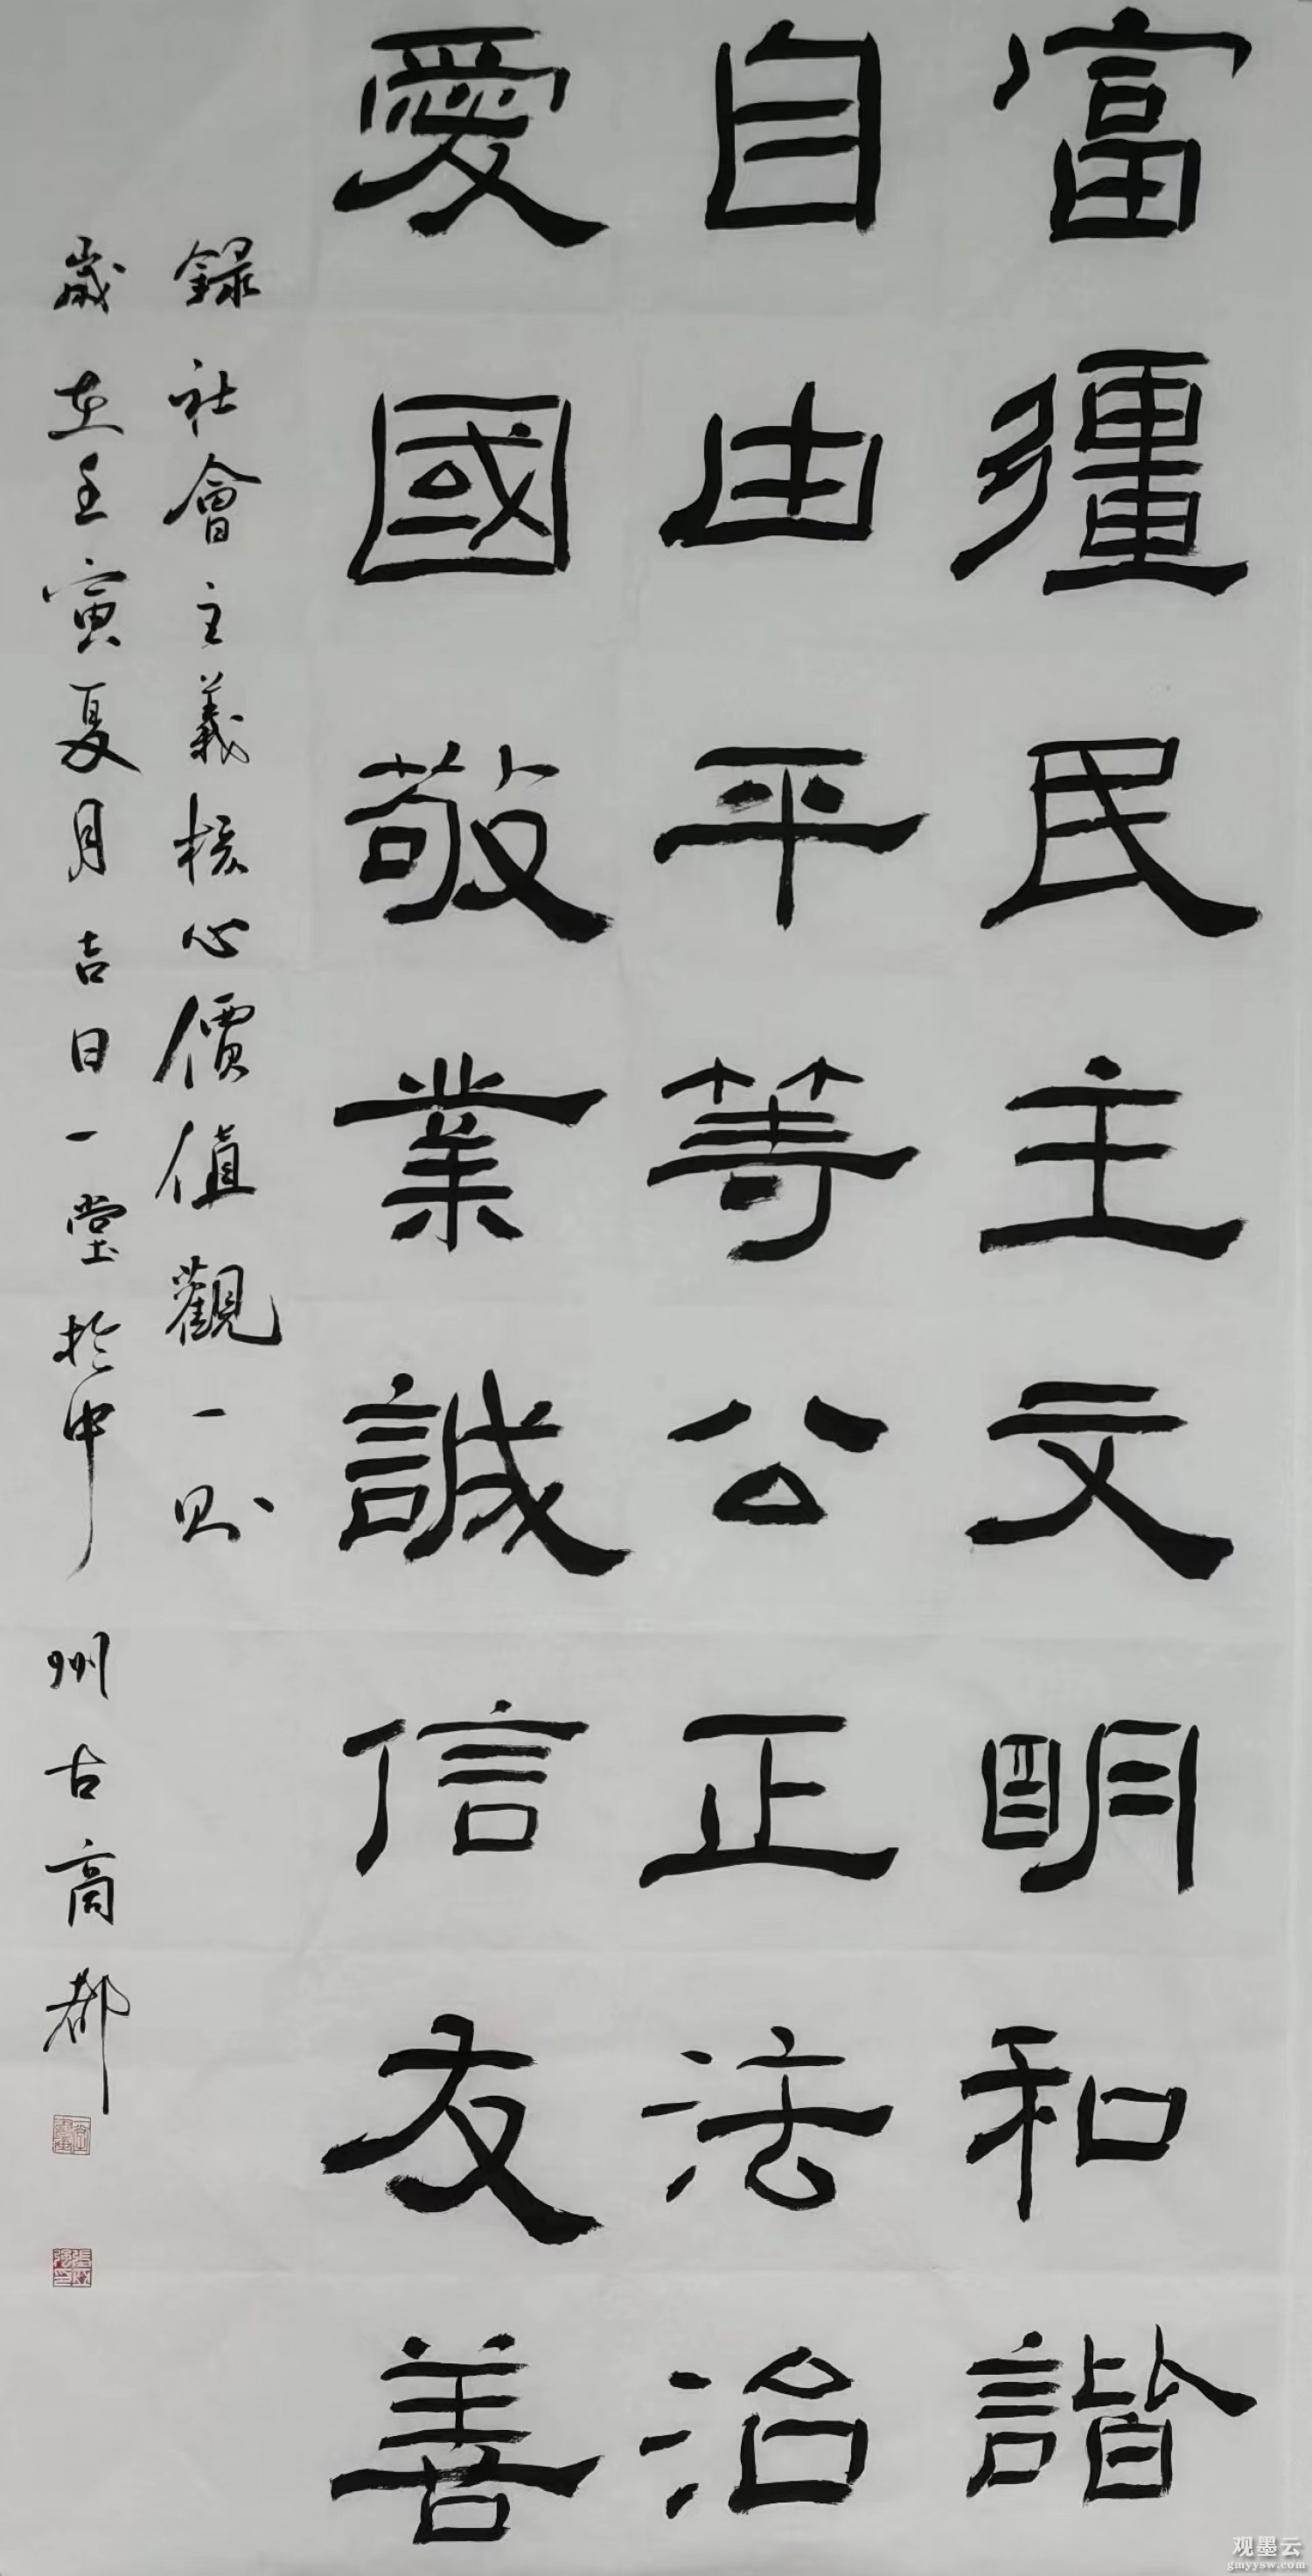 富彊民主文明和諧
自由平等公正法治
愛國敬業誠信友善
錄社會主義核心價值觀一則
歲在壬寅夏月吉日一堂於中州古商都
观墨云
gmyysw.com